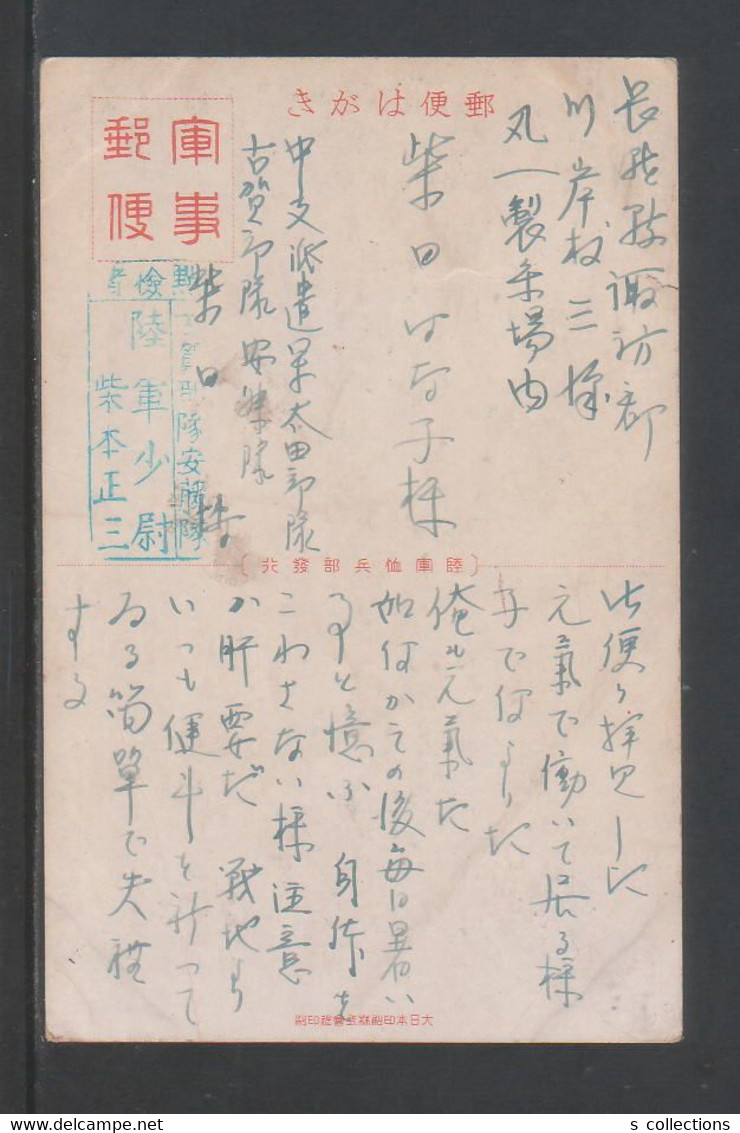 郵便はがき
軍事
郵便
長野縣諏訪郡
川岸村三澤
丸一製糸場内
柴田はな子様
中支派遣軍太田部隊
古賀部隊安藤隊
柴田
檢閲者
賀部隊安藤隊
陸軍少尉
柴本正三
(陸軍恤兵部發行)
お便り拝見した
元氣で働いて居る様
子で何よりだ
俺も元氣だ
如何かその後毎日暑い
事と憶ふ 身体を
こわさない様注意
が肝要だ 戦地より
いつも健斗を祈って
ゐる簡單で失礼
する
大日本印刷株式會社印刷
s collections